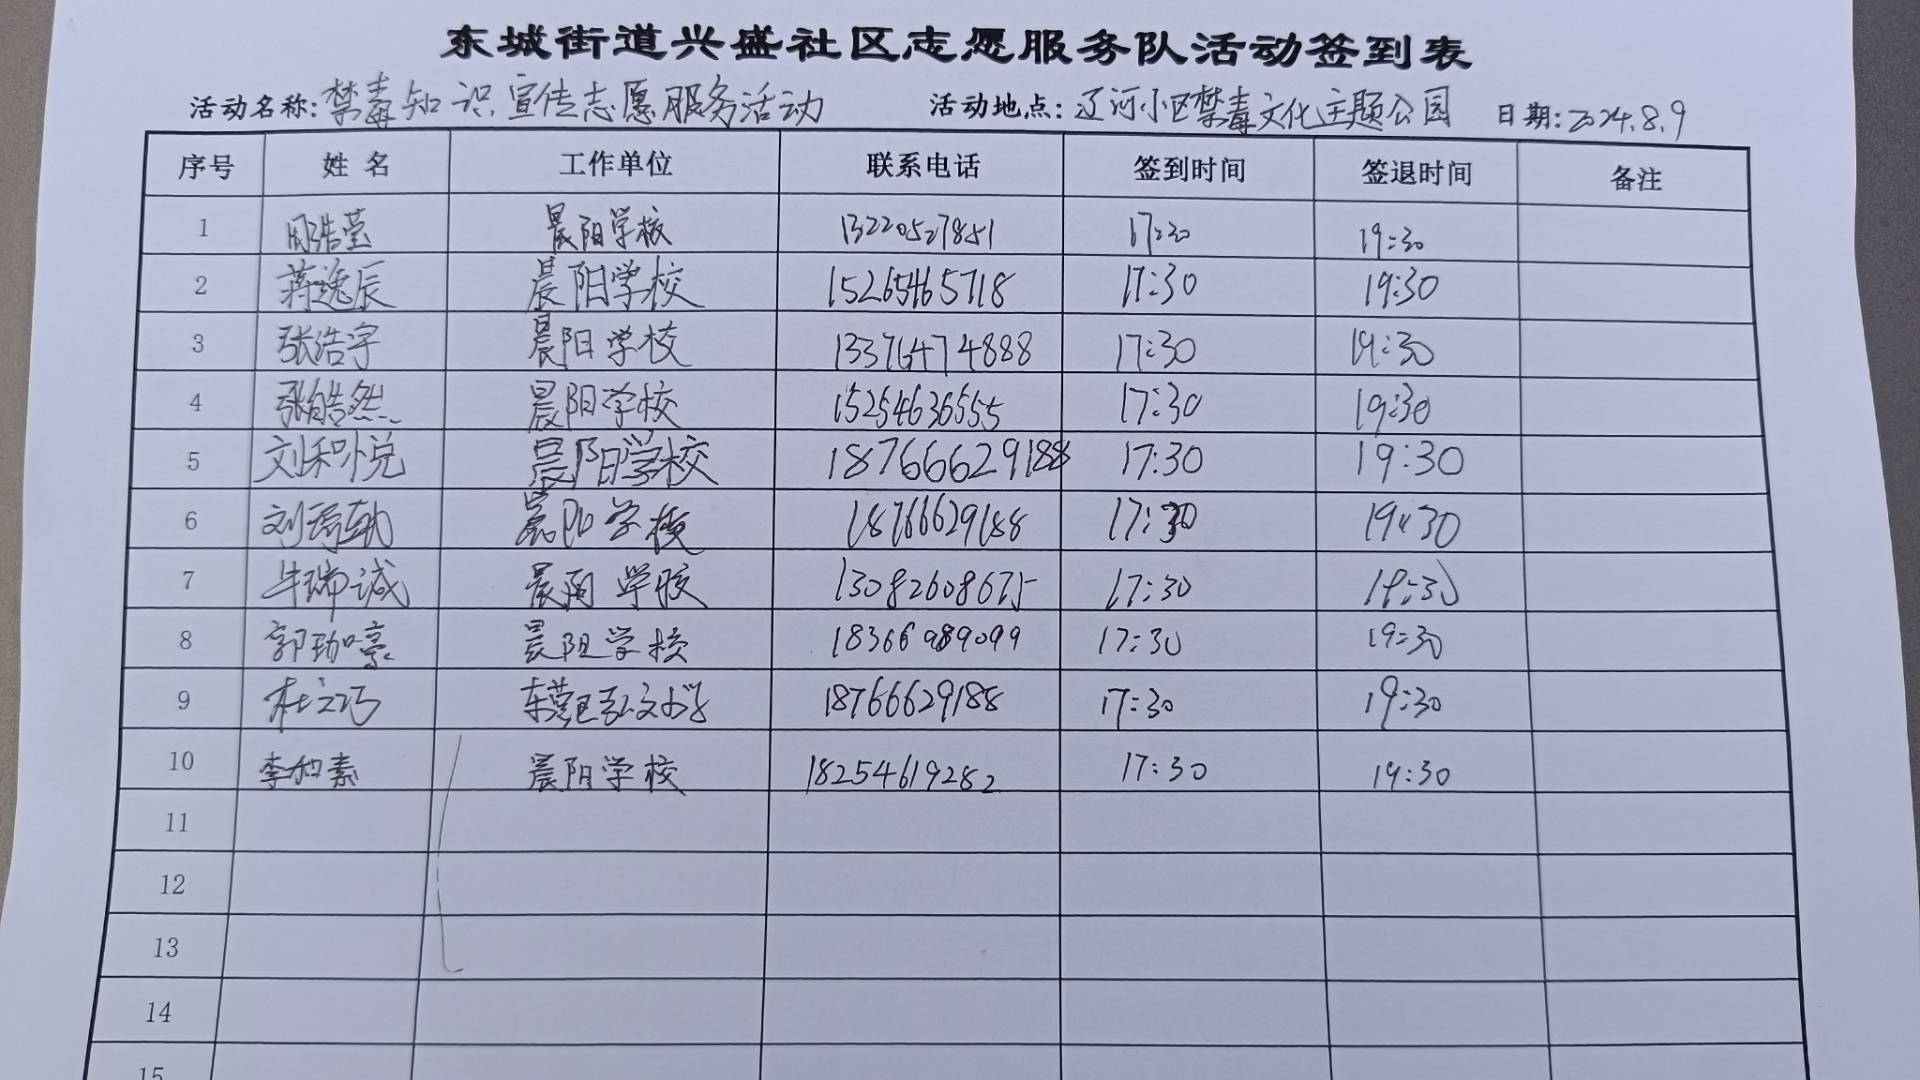 东城街道兴盛社区志愿服务队活动签到表
活动名称:禁毒知识宣传志愿服务活动 活动地点:辽河小区禁毒文化主题公园 日期:2024.8.9
序号 姓名 工作单位 联系电话 签到时间 签退时间 备注
1 周浩莹 晨阳学校 13220527851 17:30 19:30
2 蒋逸辰 晨阳学校 15265465718 17:30 19:30
3 张浩宇 晨阳学校 13376474888 17:30 19:30
4 张皓然 晨阳学校 15254636555 17:30 19:30
5 刘和悦 晨阳学校 18766629188 17:30 19:30
6 晨阳学校 18766629188 17:30 19:30
7 牛瑞诚 晨阳学校 13082608675 17:30 19:30
8 晨阳学校 18366989099 17:30 19:30
9 杜立巧 18766629188 17:30 19:30
10 李和素 晨阳学校 18254619282 17:30 19:30
11
12
13
14
15